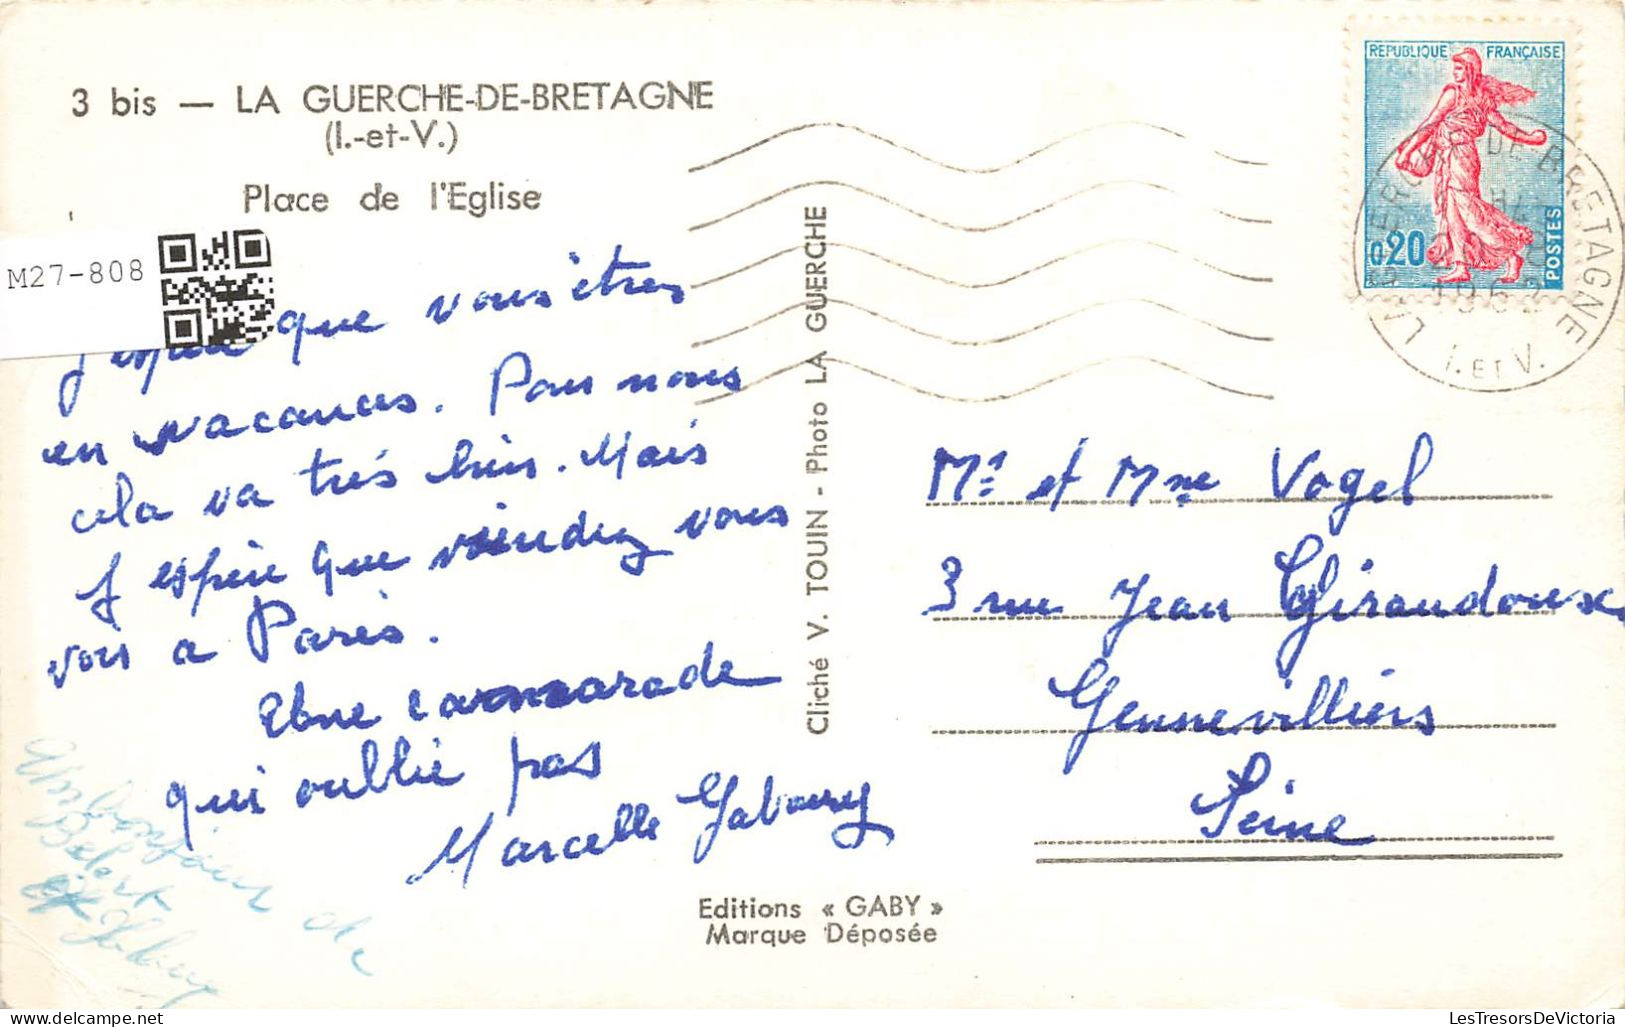 3 bis — LA GUERCHE-DE-BRETAGNE
(I.-et-V.)
Place de l'Eglise
M27-808
REPUBLIQUE FRANÇAISE
0,20
POSTES
LA GUERCHE-DE-BRETAGNE
1962
I. ET V.
que vous êtes
en vacances. Pour nous
cela va très bien. Mais
J espère que viendez vous
voir a Paris.
camarade
qui oublie pas
Marcelle
Un bonjour de
Cliché V. TOUIN - Photo LA GUERCHE
Mr et Mme Vogel
3 rue Jean Giraudoux
Gennevilliers
Seine
Editions « GABY »
Marque Déposée
delcampe.net
LesTresorsDeVictoria